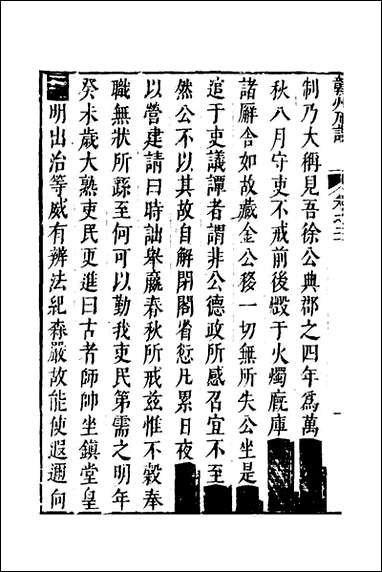 制乃大稱見吾徐公典郡之四年爲萬
秋八月守吏不戒前後燬于火燭廐庫
諸廨舍如故藏金公移一切無所失公坐是
逭于吏議譚者謂非公德政所感召宜不至
然公不以其故自解閉閣省愆凡累日夜
以營建請曰時詘舉羸春秋所戒兹惟不穀奉
職無狀所繇至何可以勤我吏民第需之明年
癸未歲大熟吏民更進曰古者師帥坐鎮堂皇
明出治等威有辨法紀森嚴故能使遐邇向
贛州府誌
卷之三